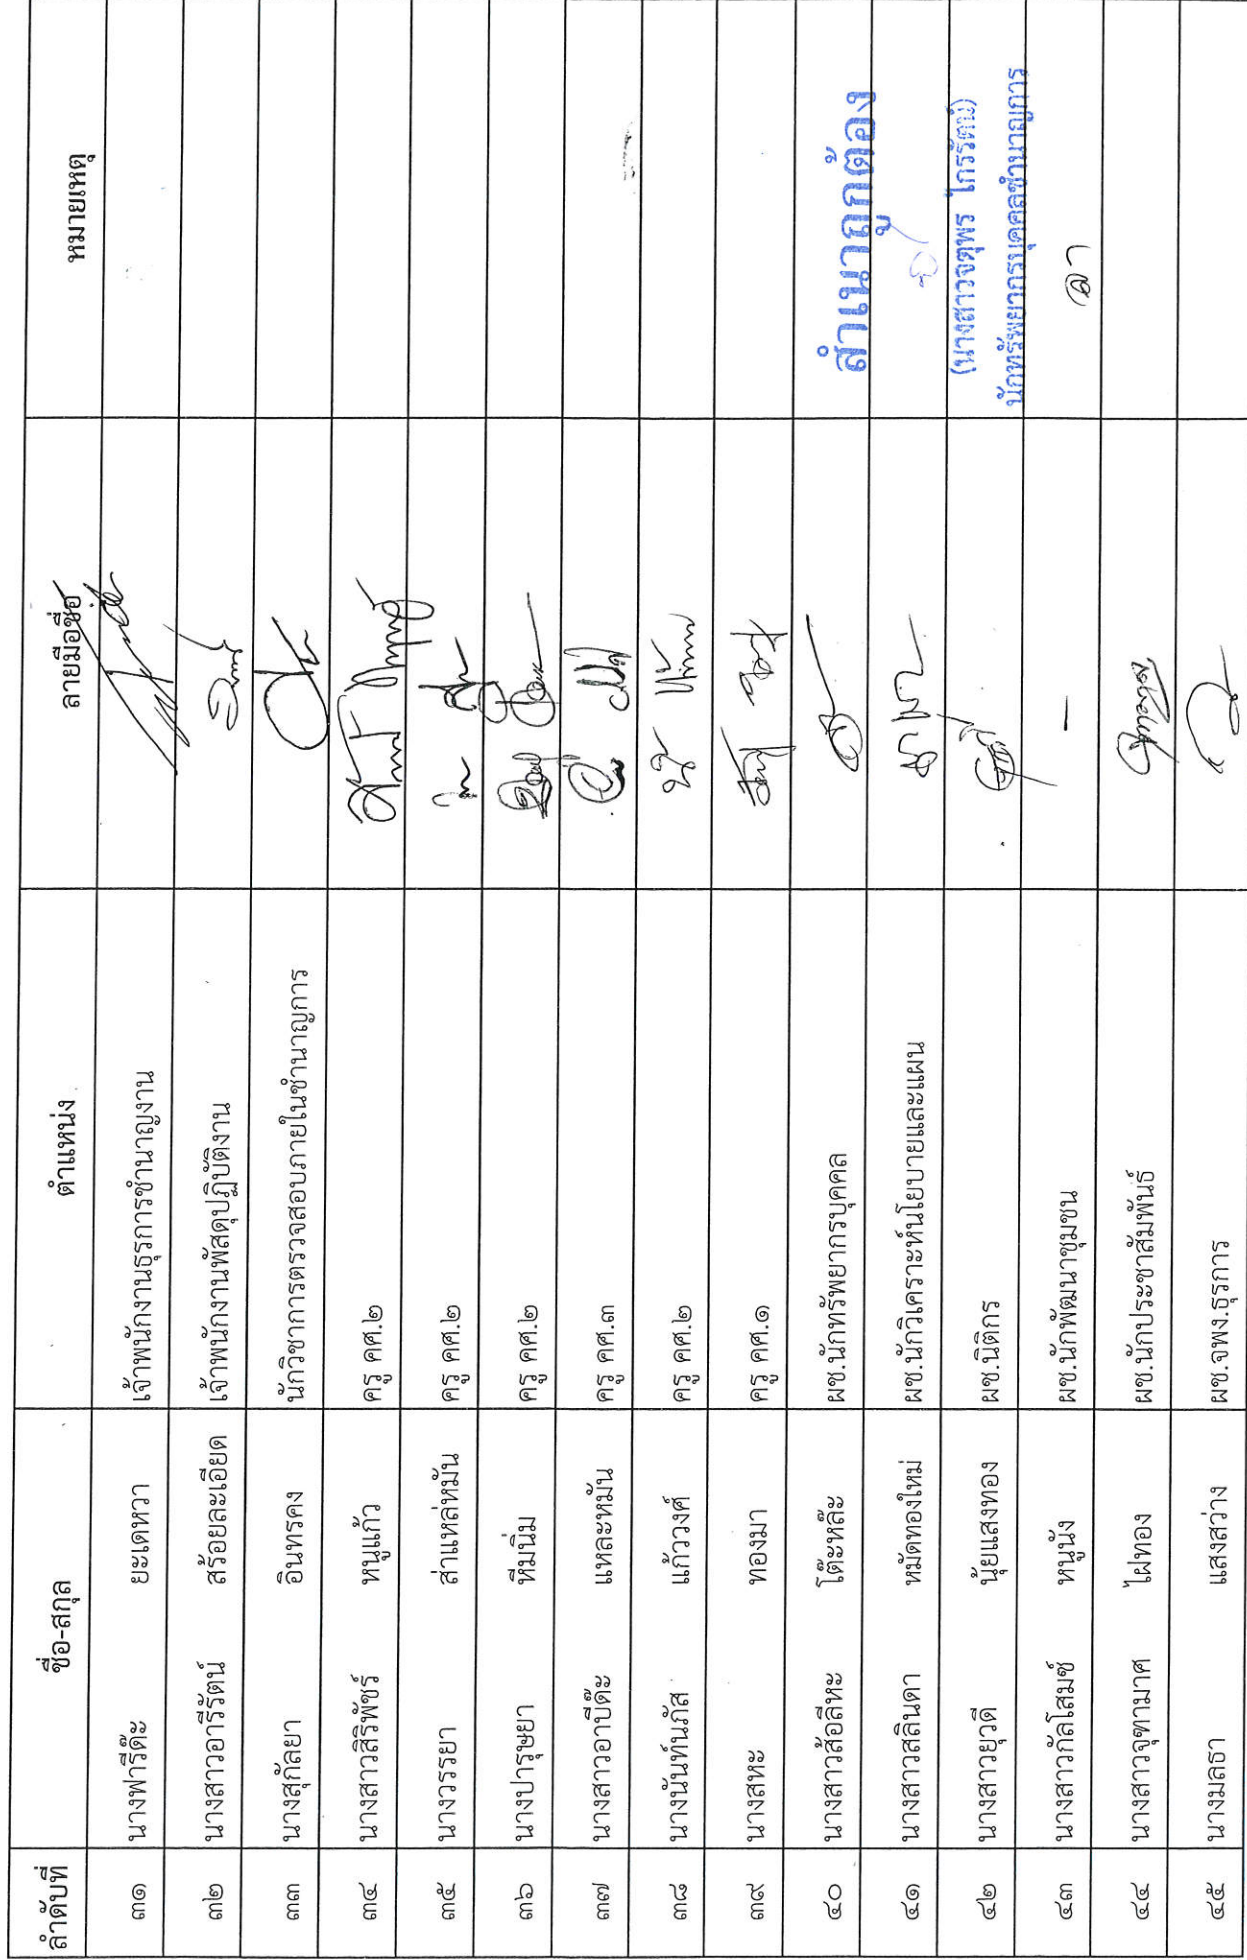 ลำดับที่ ชื่อ-สกุล ตำแหน่ง ลายมือชื่อ หมายเหตุ
๓๑ นางฟารีด๊ะ ยะเดหวา เจ้าพนักงานธุรการชำนาญงาน
๓๒ นางสาวอารีรัตน์ สร้อยละเอียด เจ้าพนักงานพัสดุปฏิบัติงาน
๓๓ นางสุกัลยา อินทรคง นักวิชาการตรวจสอบภายในชำนาญการ
๓๔ นางสาวสิริพัชร์ หนูแก้ว ครู คศ.๒
๓๕ นางวรรยา ส่าแหล่หมัน ครู คศ.๒
๓๖ นางปารุษยา หีมนิ่ม ครู คศ.๒
๓๗ นางสาวอาบีด๊ะ แหละหมัน ครู คศ.๓
๓๘ นางนันท์นภัส แก้ววงศ์ ครู คศ.๒
๓๙ นางสหะ ทองมา ครู คศ.๑
๔๐ นางสาวส้อลีหะ โต๊ะหล๊ะ ผช.นักทรัพยากรบุคคล
สำเนาถูกต้อง
๔๑ นางสาวสลินดา หมัดทองใหม่ ผช.นักวิเคราะห์นโยบายและแผน
๔๒ นางสาวยุวดี นุ้ยแสงทอง ผช.นิติกร
(นางสาวจตุพร ไกรรัตน์)
นักทรัพยากรบุคคลชำนาญการ
๔๓ นางสาวกัลโสมช์ หนูนัง ผช.นักพัฒนาชุมชน - ลา
๔๔ นางสาวจุฑามาศ ไฝทอง ผช.นักประชาสัมพันธ์
๔๕ นางมลธา แสงสว่าง ผช.จพง.ธุรการ